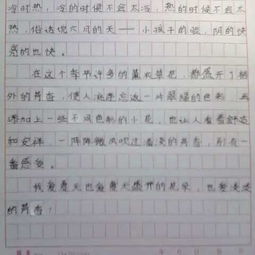 冷时热，冷的时候不会太冷，热的时候不会太
热，俗话说六月的天——小孩子的脸，阴的快
的也快。
在这个季节许多的薰衣草花，都 开了
外的芳香，使人 忘 一片 的色彩，再
添加上一些不同色彩的小花，也让人看着舒适
和安祥，一阵阵微风吹过 淡的芳香，别有一
番感 。
我爱夏天也爱夏天盛开的花朵，也爱淡淡
的芳香！